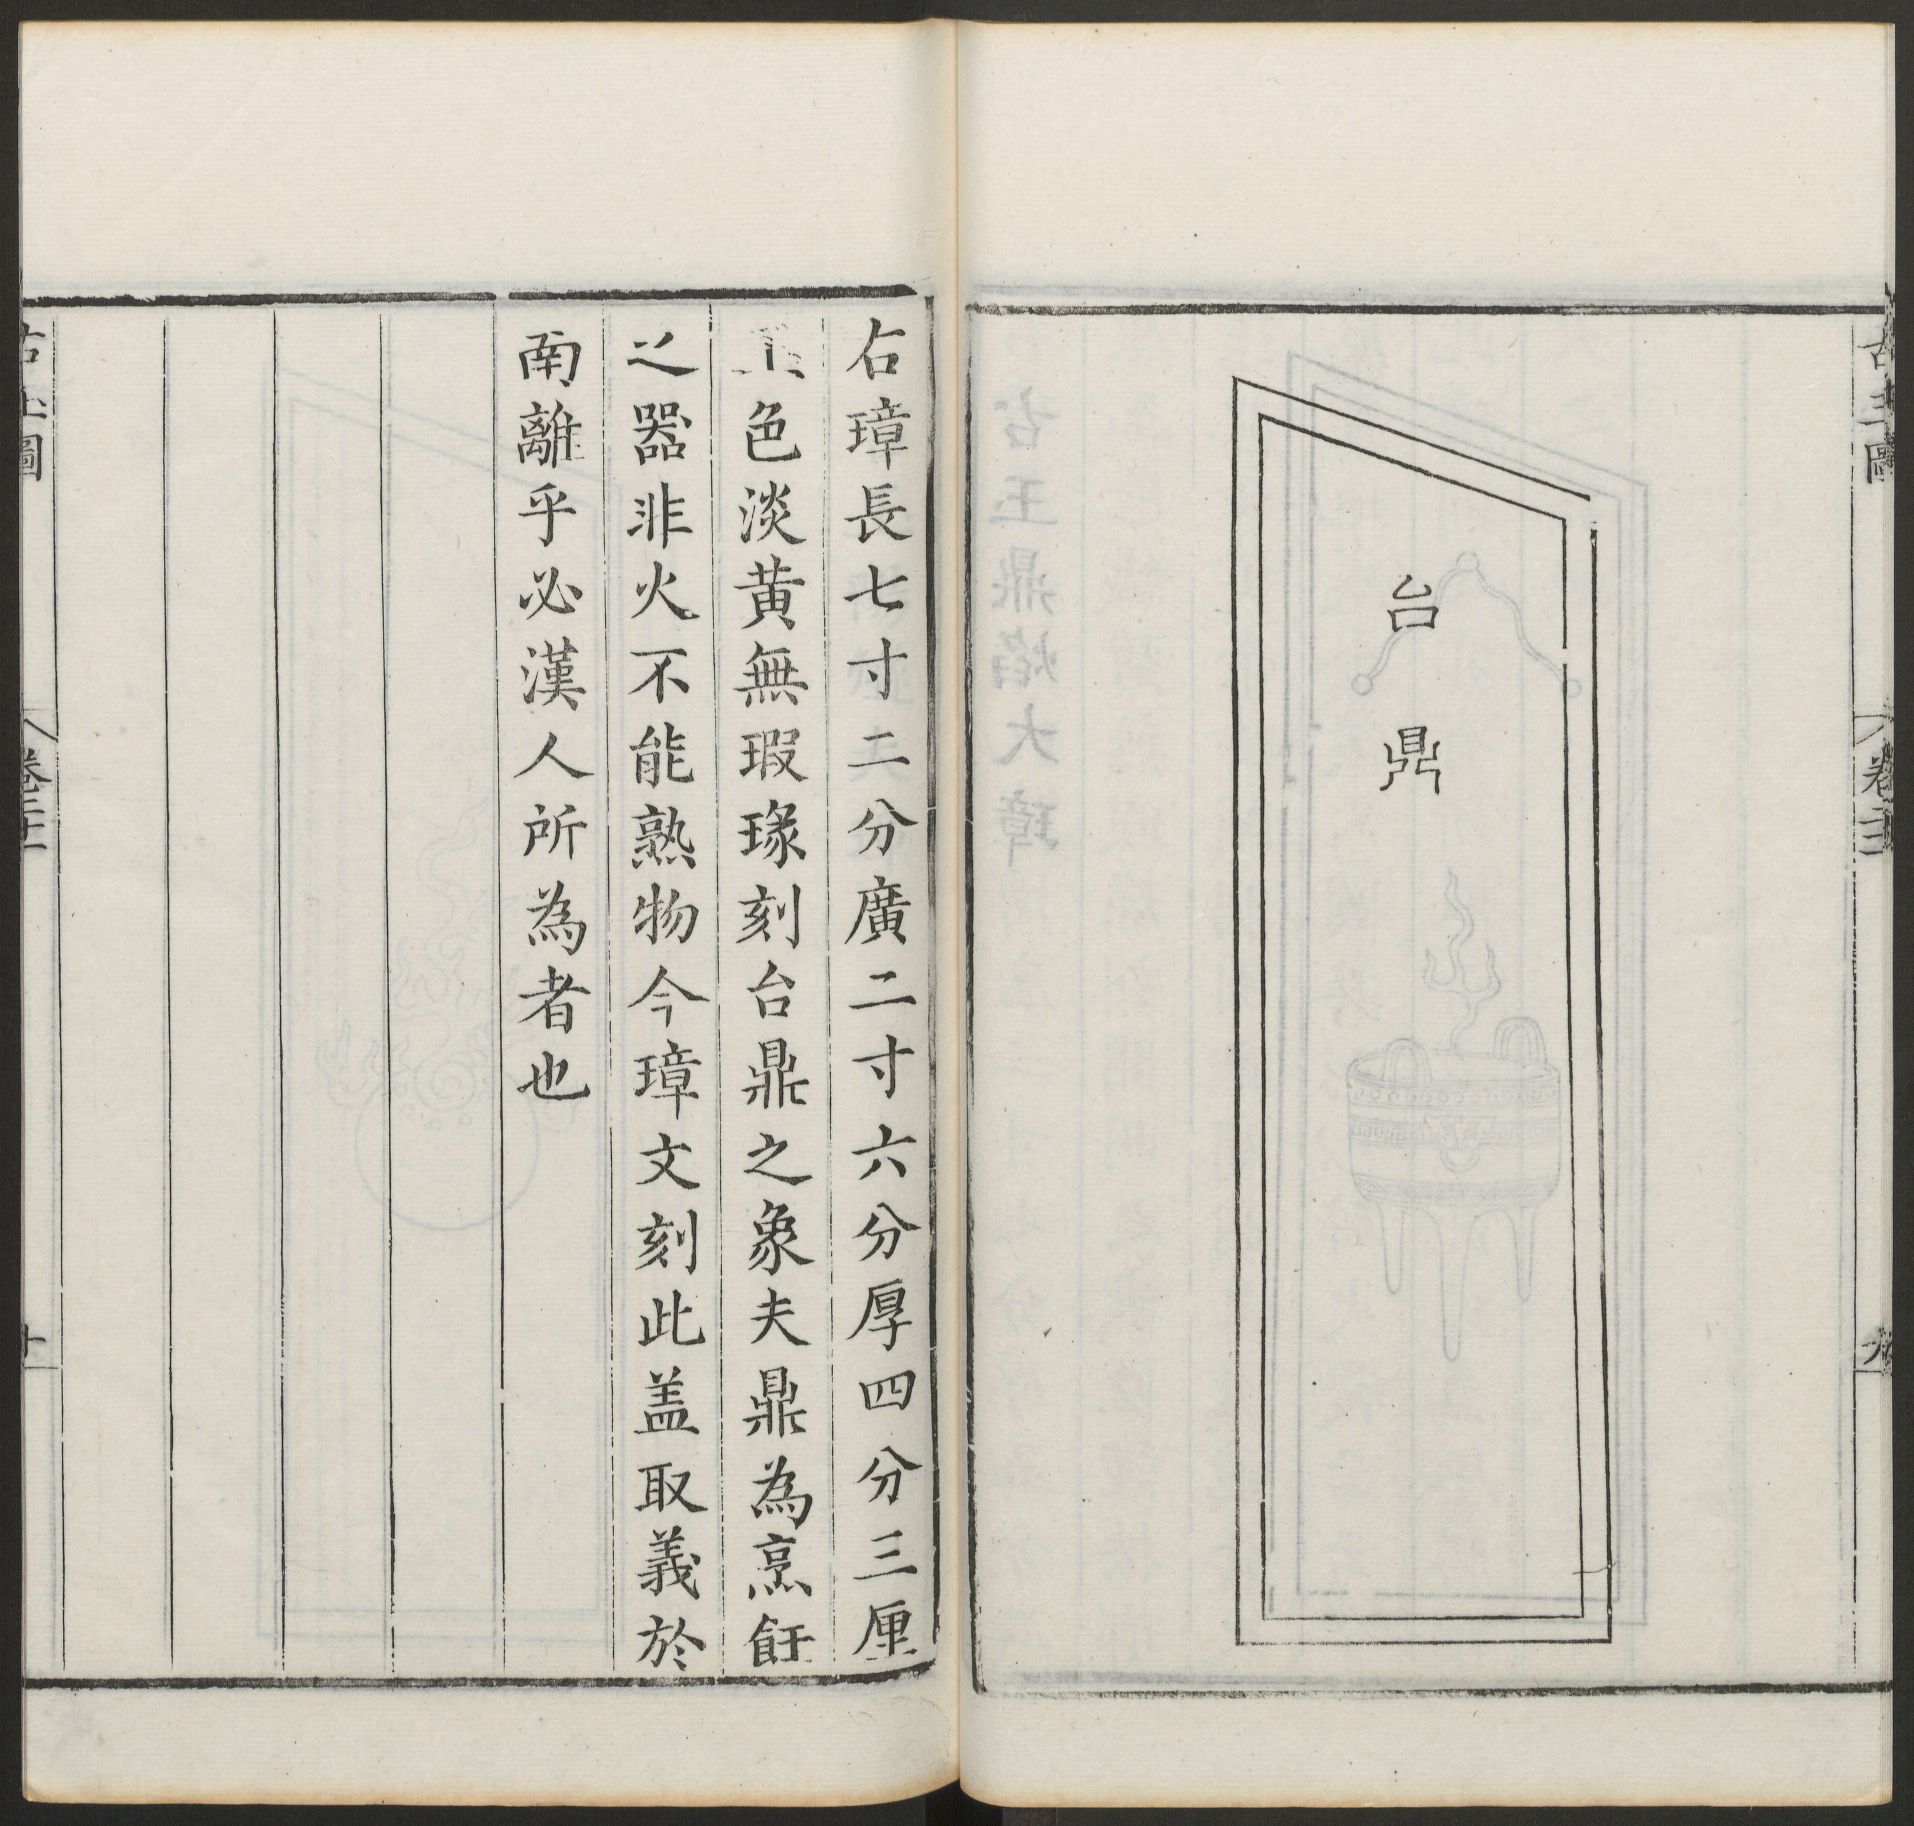 古玉圖
卷二十二
九
台
鼎
右璋長七寸二分廣二寸六分厚四分三厘
玉色淡黄無瑕瑑刻台鼎之象夫鼎為烹飪
之器非火不能熟物今璋文刻此盖取義於
南離乎必漢人所為者也
古玉圖
十